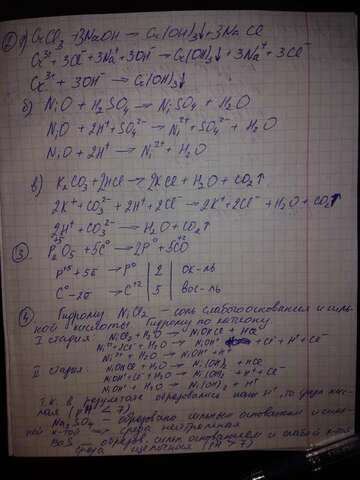 2) а) CrCl3 + 3NaOH → Cr(OH)3↓ + 3NaCl
Cr3+ + 3Cl- + 3Na+ + 3OH- → Cr(OH)3↓ + 3Na+ + 3Cl-
Cr3+ + 3OH- → Cr(OH)3↓
б) NiO + H2SO4 → NiSO4 + H2O
NiO + 2H+ + SO4 2- → Ni2+ + SO4 2- + H2O
NiO + 2H+ → Ni2+ + H2O
в) K2CO3 + 2HCl → 2KCl + H2O + CO2↑
2K+ + CO3 2- + 2H+ + 2Cl- → 2K+ + 2Cl- + H2O + CO2↑
2H+ + CO3 2- → H2O + CO2↑
3) P2+5O5 + 5C0 → 2P0 + 5C+2O
P+5 + 5e → P0 | 2 | ок-ль
C0 - 2e → C+2 | 5 | вос-ль
4) Гидролиз NiCl2 - соль слабого основания и силь
ной кислоты. Гидролиз по катиону
I стадия NiCl2 + H2O → NiOHCl + HCl
Ni2+ + 2Cl- + H2O → NiOH+ + Cl- + H+ + Cl-
Ni2+ + H2O → NiOH+ + H+
II стадия NiOHCl + H2O → Ni(OH)2 + HCl
NiOH+ + Cl- + H2O → Ni(OH)2 + H+ + Cl-
NiOH+ + H2O → Ni(OH)2 + H+
Т.к. в результате образовались ионы H+, то среда кис
лая (pH < 7)
Na2SO4 - образовано сильным основанием и силь
ной к-той ⇒ среда нейтральная
BaS - образов. сильн. основанием и слабой к-той
среда щелочная (pH > 7)